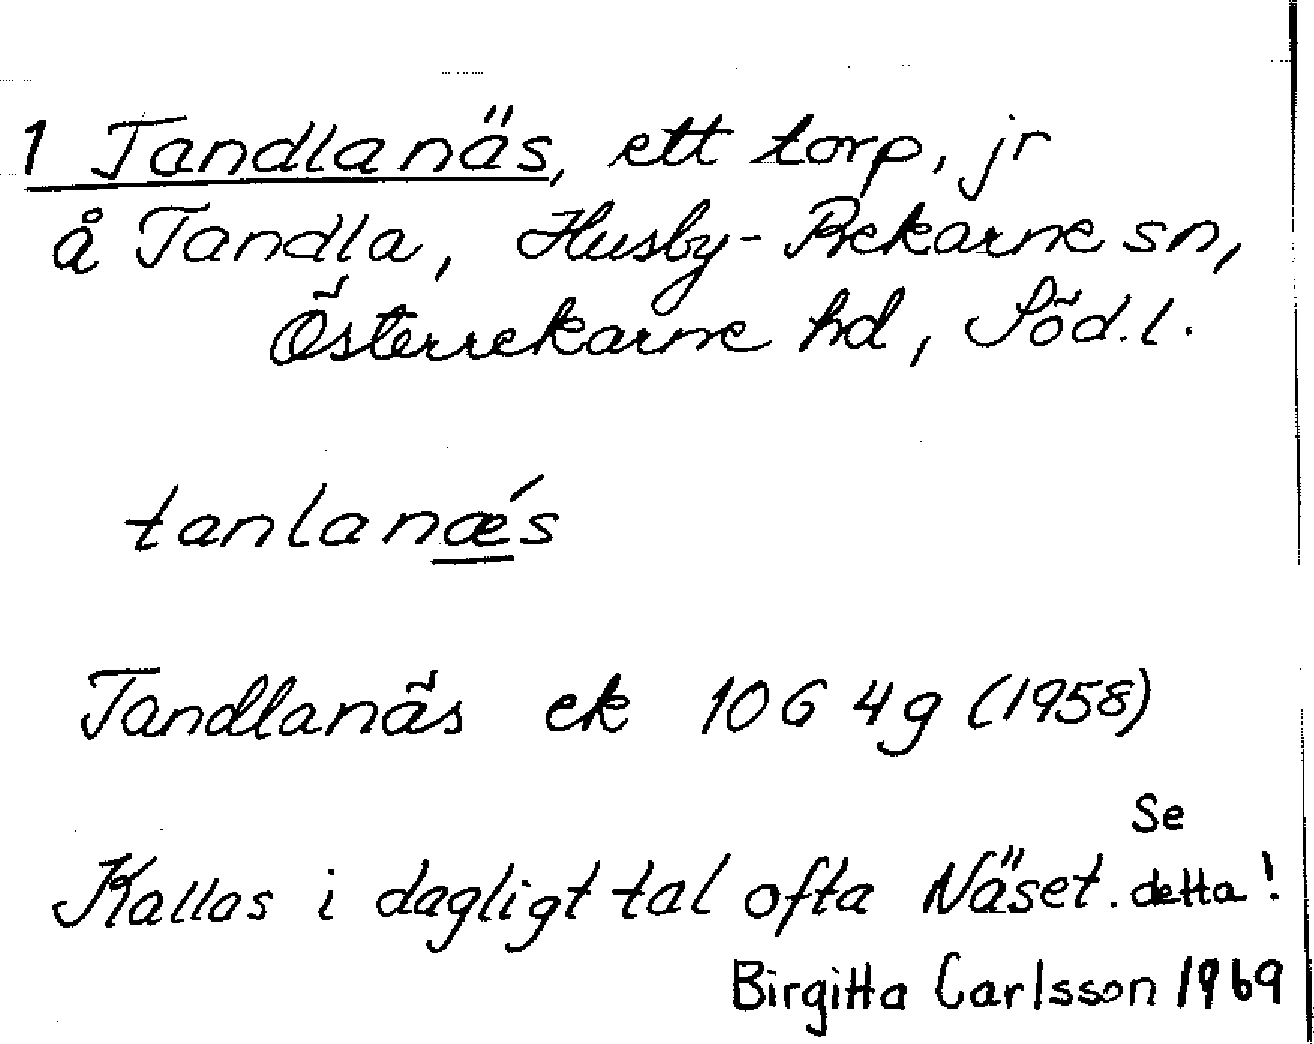 1 Tandlanäs, ett torp, jr
å Tandla, Husby-Rekarne sn,
Österrekarne hd, Söd. l.
tanlanǽs
Tandlanäs ek 10G 4g (1958)
Kallas i dagligt tal ofta Näset. Se detta!
Birgitta Carlsson 1969